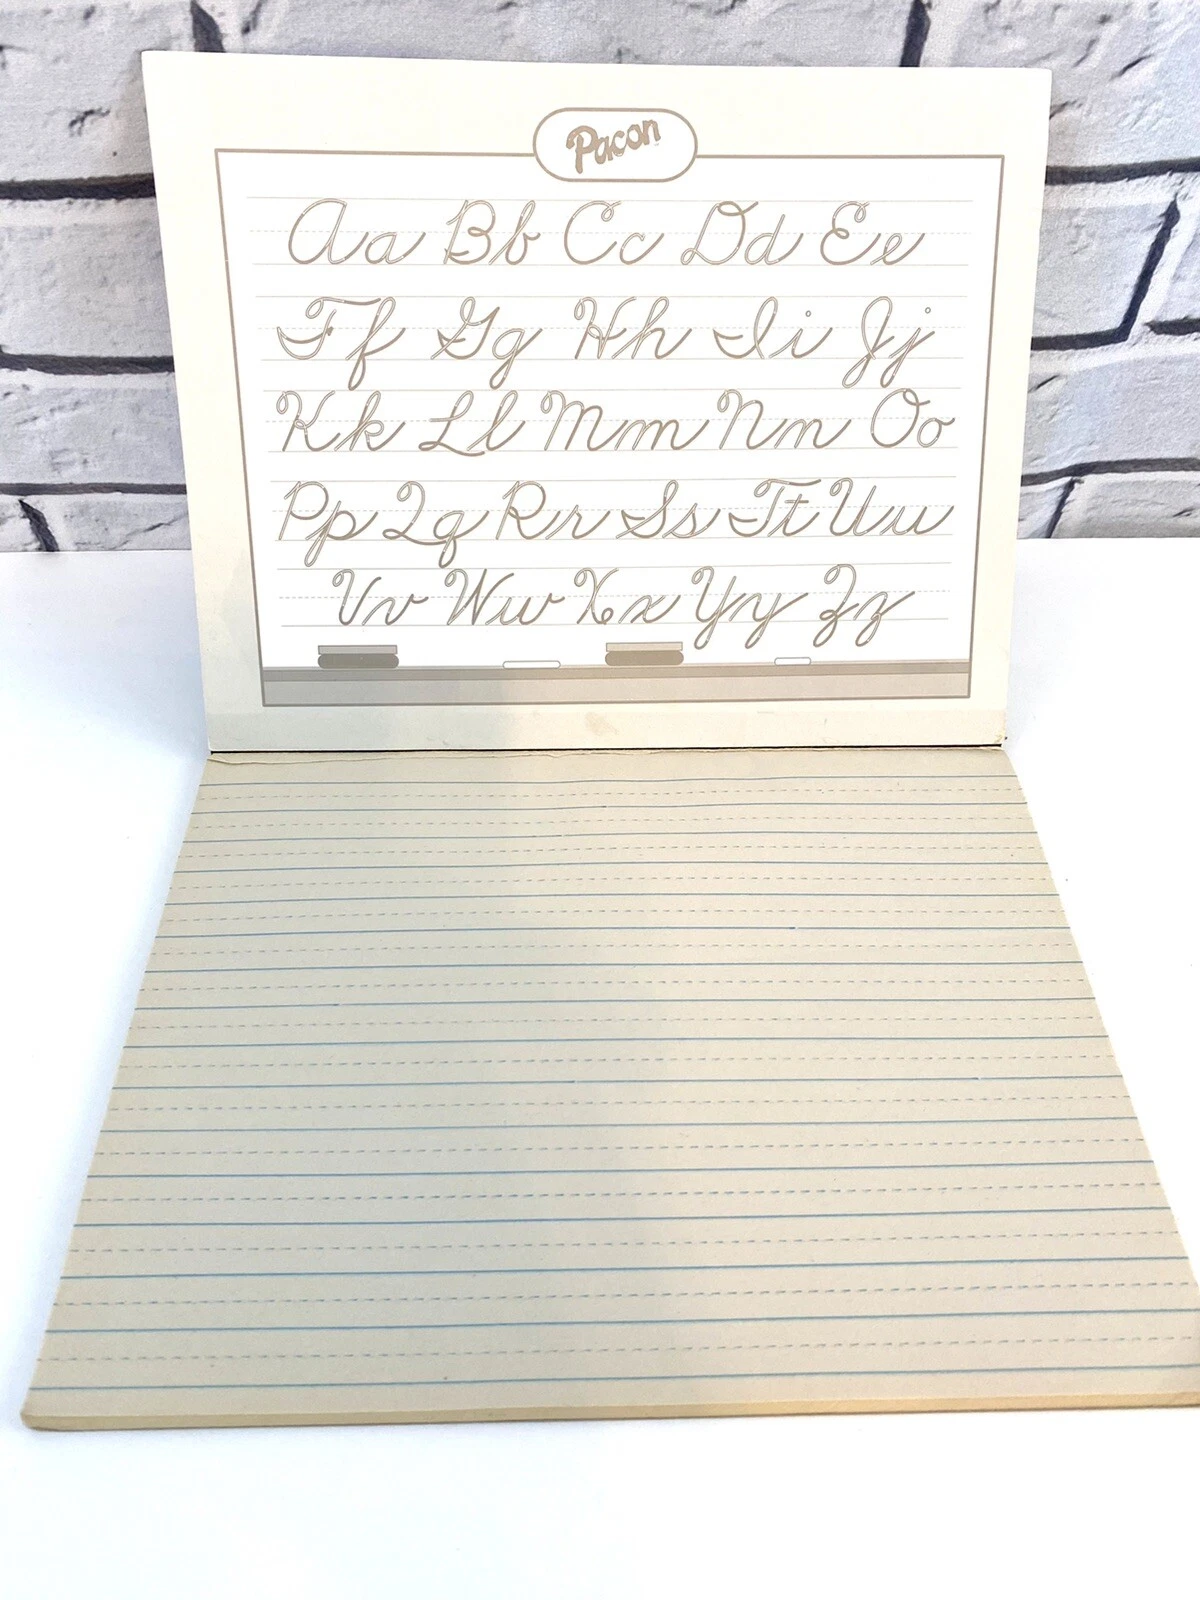 Pacon
Aa Bb Cc Dd Ee
Ff Gg Hh Ii Jj
Kk Ll Mm Nn Oo
Pp Qq Rr Ss Tt Uu
Vv Ww Xx Yy Zz